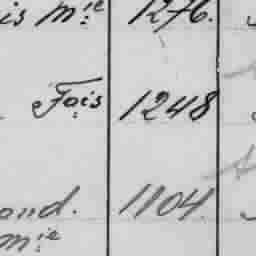 is m.ie 1276.
Fois 1248
ond. 1104.
m.ie